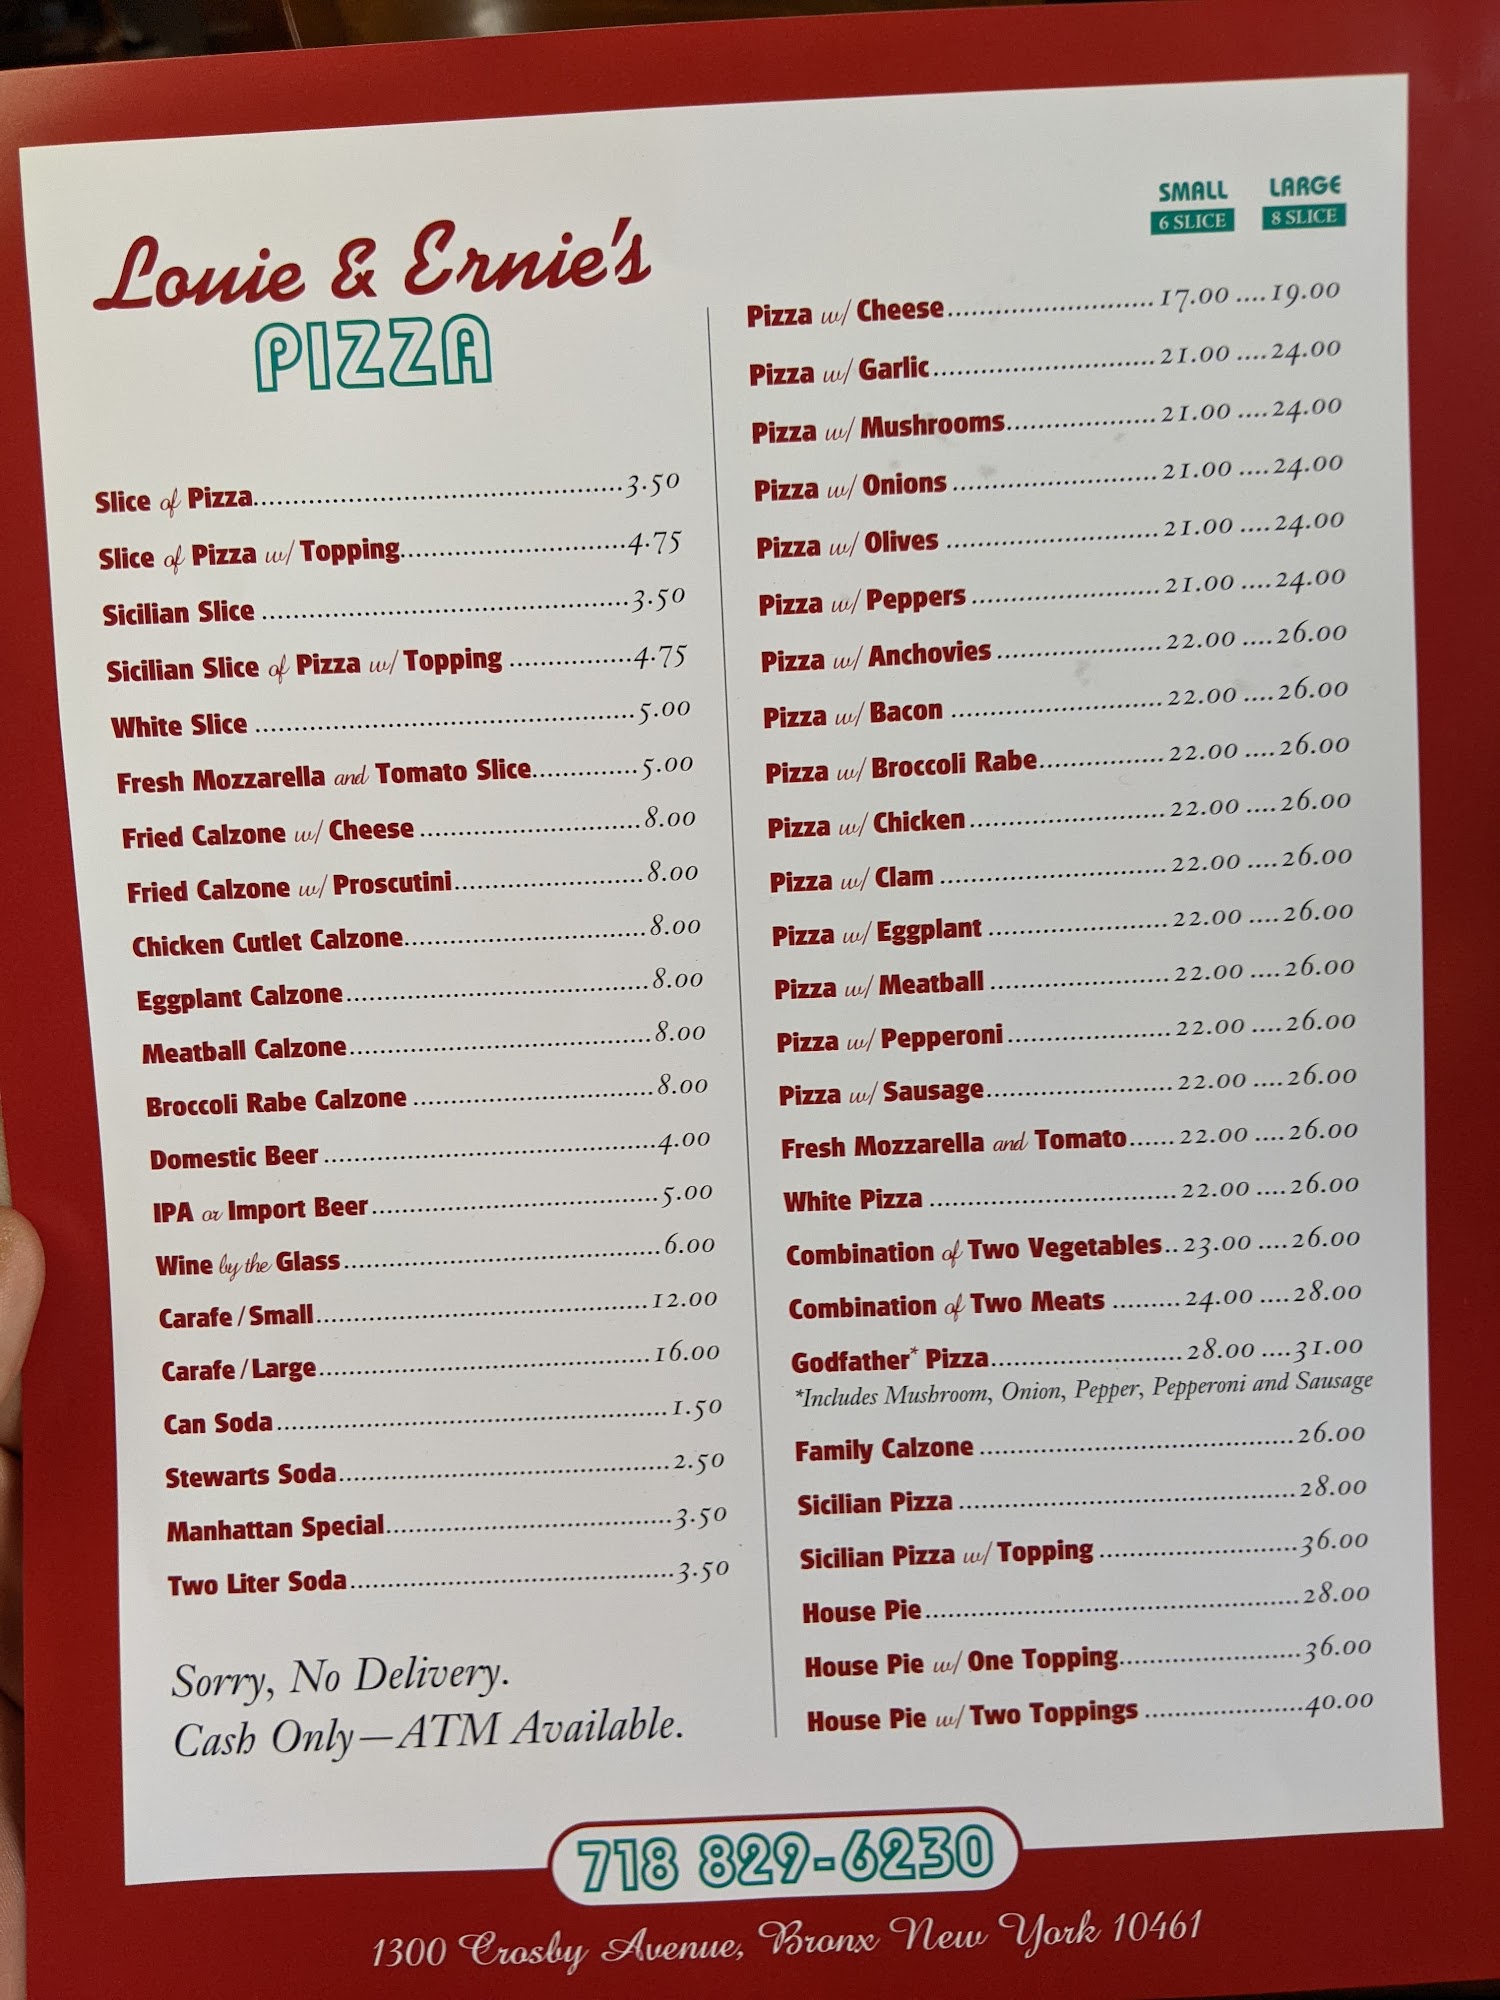 Louie & Ernie's
PIZZA
Slice of Pizza.......................................3.50
Slice of Pizza w/ Topping........................4.75
Sicilian Slice .......................................3.50
Sicilian Slice of Pizza w/ Topping .............4.75
White Slice ........................................5.00
Fresh Mozzarella and Tomato Slice............5.00
Fried Calzone w/ Cheese ........................8.00
Fried Calzone w/ Proscutini.....................8.00
Chicken Cutlet Calzone..........................8.00
Eggplant Calzone.................................8.00
Meatball Calzone.................................8.00
Broccoli Rabe Calzone ..........................8.00
Domestic Beer ....................................4.00
IPA or Import Beer...............................5.00
Wine by the Glass.................................6.00
Carafe / Small.....................................12.00
Carafe / Large.....................................16.00
Can Soda...........................................1.50
Stewarts Soda.....................................2.50
Manhattan Special................................3.50
Two Liter Soda....................................3.50
Sorry, No Delivery.
Cash Only—ATM Available.
SMALL LARGE
6 SLICE 8 SLICE
Pizza w/ Cheese........................17.00 ....19.00
Pizza w/ Garlic..........................21.00 ....24.00
Pizza w/ Mushrooms..................21.00 ....24.00
Pizza w/ Onions ........................21.00 ....24.00
Pizza w/ Olives .........................21.00 ....24.00
Pizza w/ Peppers ......................21.00 ....24.00
Pizza w/ Anchovies ...................22.00 ....26.00
Pizza w/ Bacon ........................22.00 ....26.00
Pizza w/ Broccoli Rabe...............22.00 ....26.00
Pizza w/ Chicken ......................22.00 ....26.00
Pizza w/ Clam ..........................22.00 ....26.00
Pizza w/ Eggplant .....................22.00 ....26.00
Pizza w/ Meatball .....................22.00 ....26.00
Pizza w/ Pepperoni ...................22.00 ....26.00
Pizza w/ Sausage......................22.00 ....26.00
Fresh Mozzarella and Tomato......22.00 ....26.00
White Pizza .............................22.00 ....26.00
Combination of Two Vegetables..23.00 ....26.00
Combination of Two Meats .........24.00 ....28.00
Godfather* Pizza.......................28.00 ....31.00
*Includes Mushroom, Onion, Pepper, Pepperoni and Sausage
Family Calzone ...................................26.00
Sicilian Pizza .....................................28.00
Sicilian Pizza w/ Topping .....................36.00
House Pie..........................................28.00
House Pie w/ One Topping....................36.00
House Pie w/ Two Toppings ..................40.00
718 829-6230
1300 Crosby Avenue, Bronx New York 10461